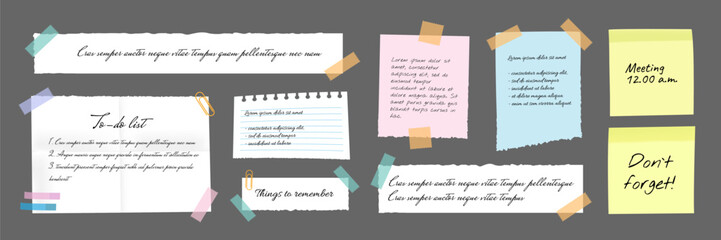 Cras semper auctor neque vitae tempus quam pellentesque nec nam
To-do list
1. Cras semper auctor neque vitae tempus quam pellentesque nec nam
2. Augue mauris augue neque gravida in fermentum et sollicitudin ac
3. Tincidunt praesent semper feugiat nibh sed pulvinar proin gravida
hendrerit
Lorem ipsum dolor sit
- consectetur adipiscing elit.
- sed do eiusmod tempor
- incididunt ut labore
Things to remember
Lorem ipsum
dolor sit amet,
consectetur
adipiscing elit, sed
do eiusmod tempor
incididunt ut labore et
dolore magna aliqua.
Lorem ipsum dolor sit amet
- consectetur adipiscing elit.
- sed do eiusmod tempor
- incididunt ut labore
- et dolore magna aliqua
- ut enim ad minim veniam.
Cras semper auctor neque vitae tempus pellentesque
Cras semper auctor neque vitae tempus
Meeting
12.00 a.m.
Don't
forget!